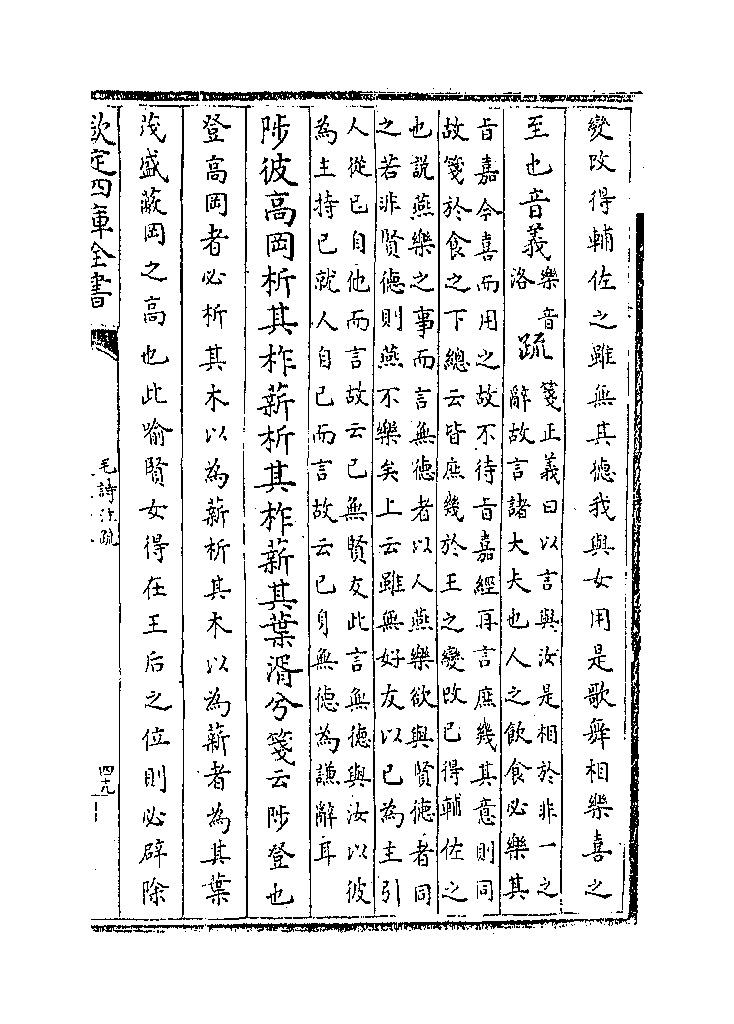 變改得輔佐之雖無其德我與女用是歌舞相樂喜之
至也音義樂音
洛
疏
箋正義曰以言與汝是相於非一之
辭故言諸大夫也人之飲食必樂其
旨嘉今喜而用之故不待旨嘉經再言庶幾其意則同
故箋於食之下總云皆庶幾於王之變改已得輔佐之
也說燕樂之事而言無德者以人燕樂欲與賢德者同
之若非賢德則燕不樂矣上云雖無好友以已為主引
人從已自他而言故云已無賢友此言無德與汝以彼
為主持已就人自已而言故云已身無德為謙辭耳
陟彼高岡析其柞薪析其柞薪其葉湑兮箋云陟登也
登高岡者必析其木以為薪析其木以為薪者為其葉
茂盛蔽岡之高也此喻賢女得在王后之位則必辟除
欽定四庫全書
毛詩注疏
四九